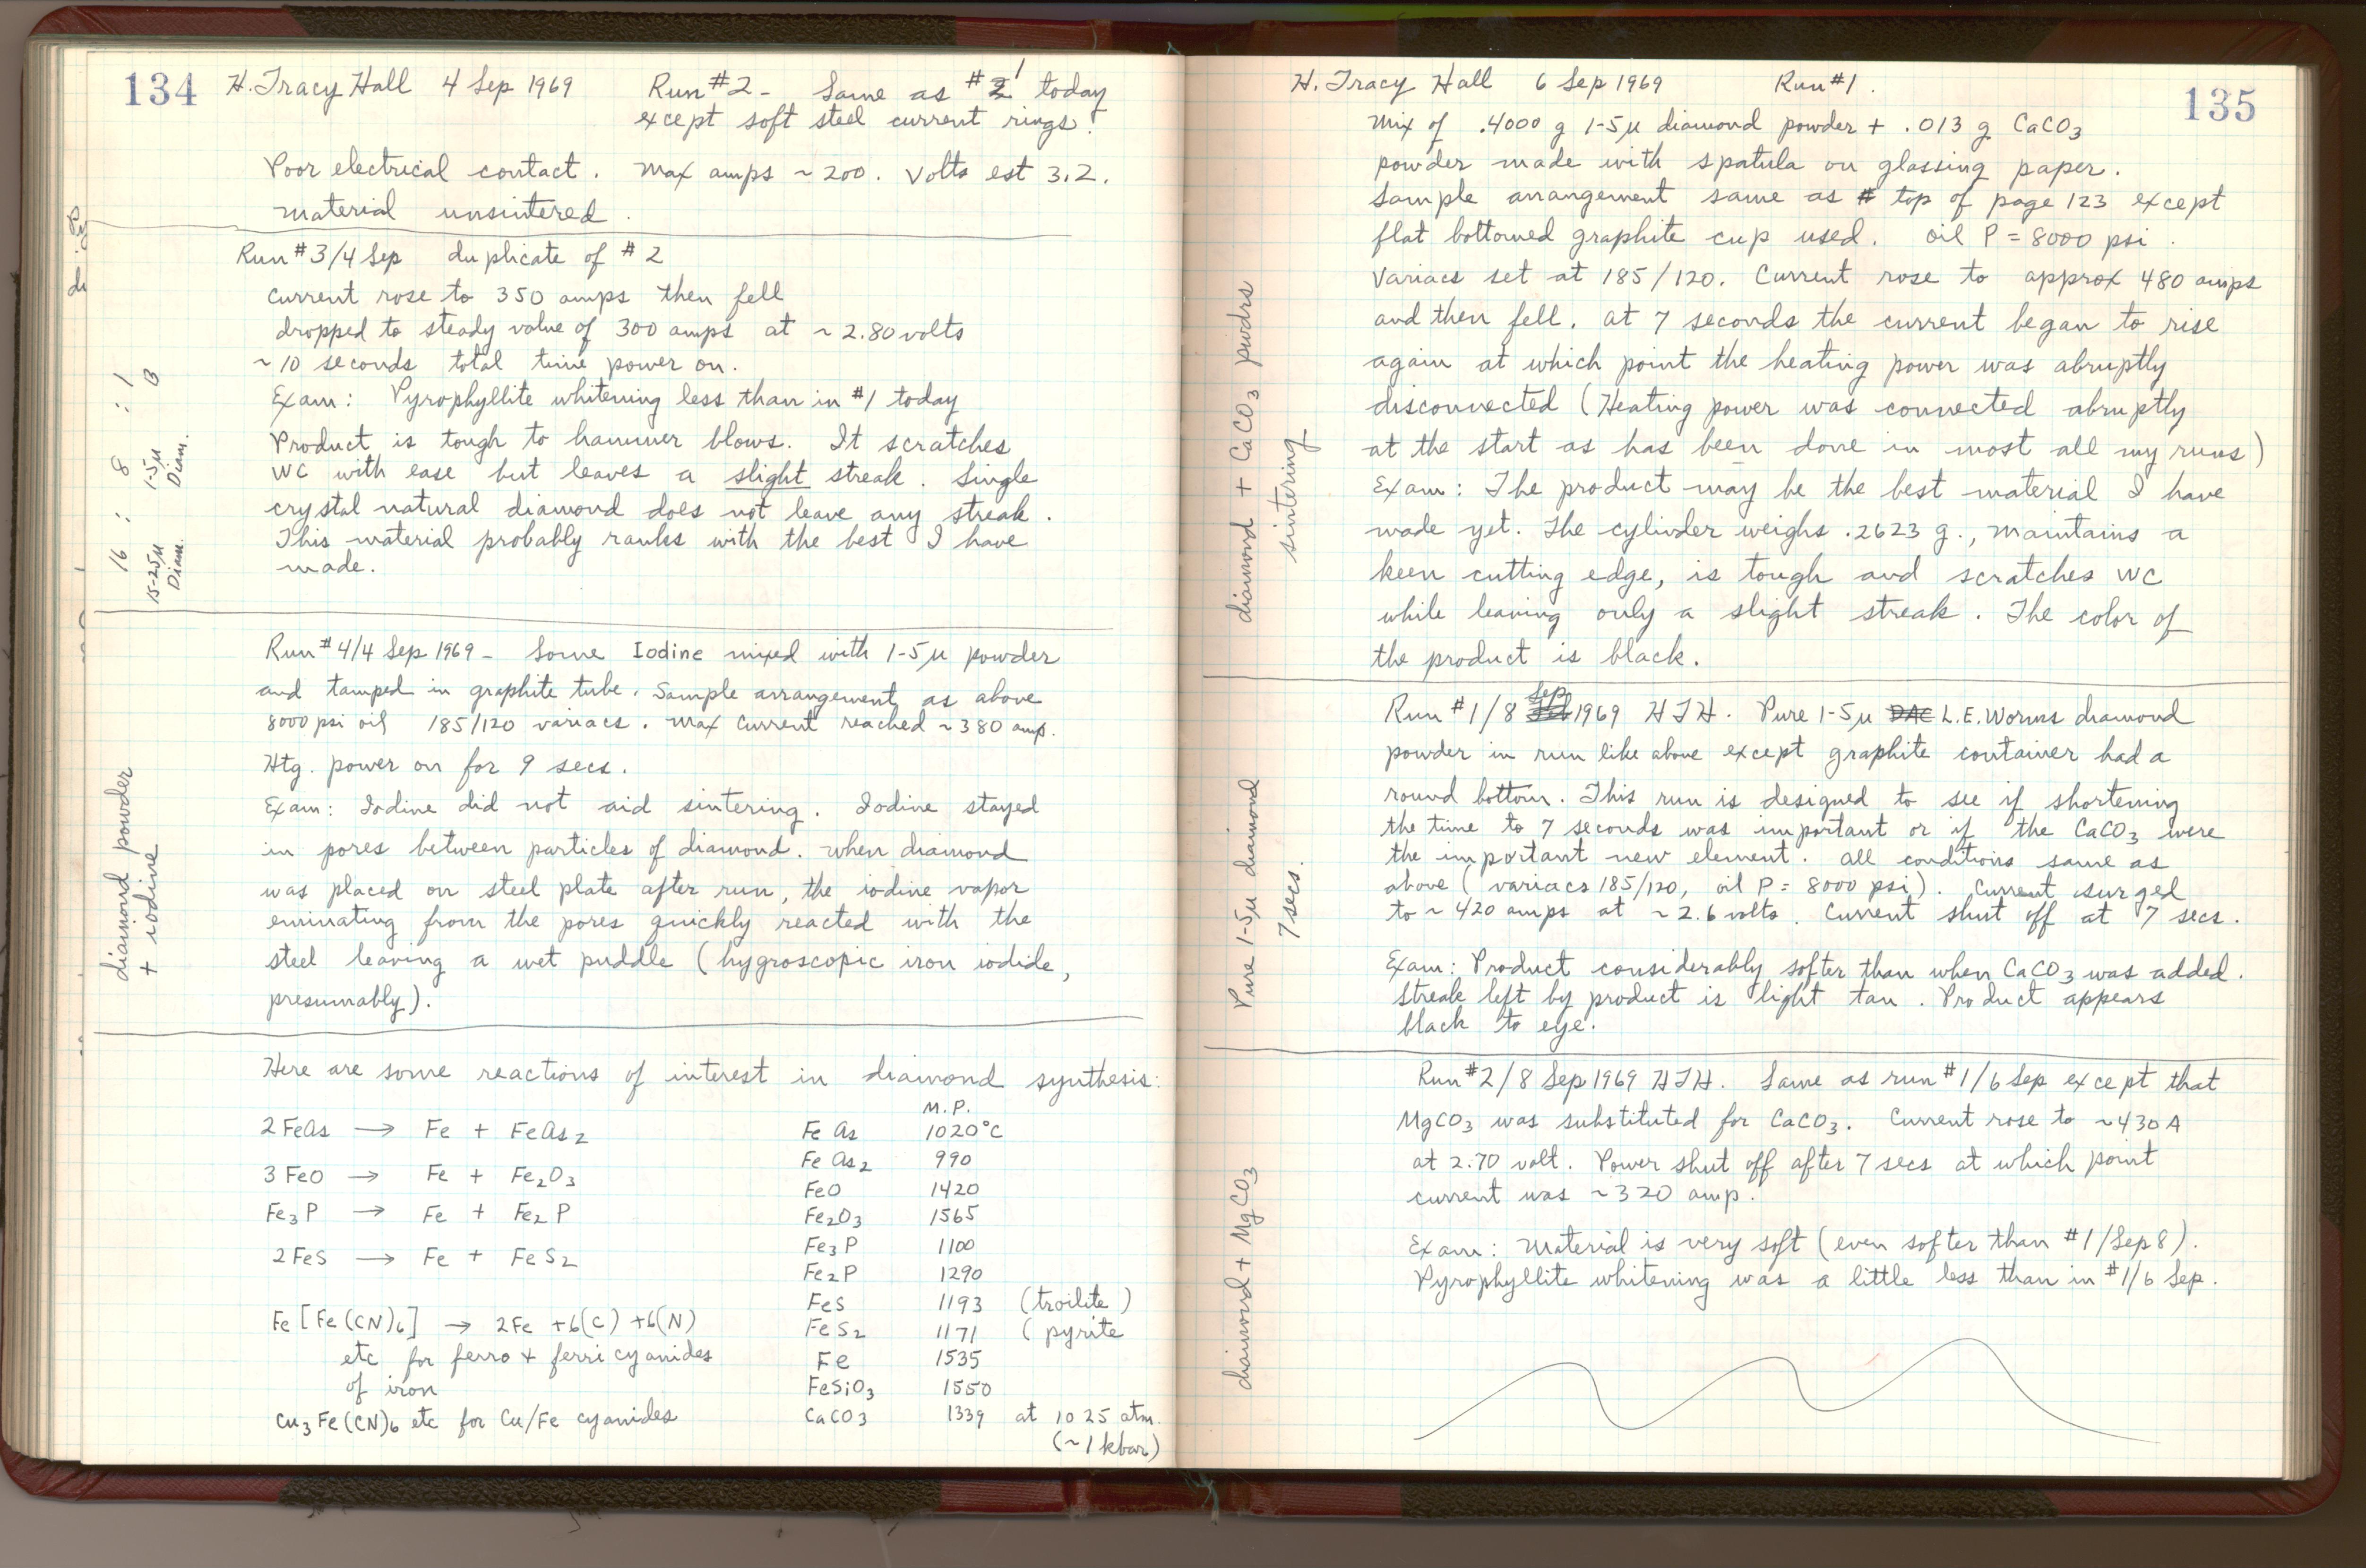 134 H. Tracy Hall 4 Sep 1969 Run #2 - Same as #1 today
except soft steel current rings.
Poor electrical contact. Max amps ~200. Volts est 3.2.
Material unsintered.
Run #3/4 Sep duplicate of #2
Current rose to 350 amps then fell
dropped to steady value of 300 amps at ~2.80 volts
~10 seconds total time power on.
Exam: Pyrophyllite whitening less than in #1 today
Product is tough to hammer blows. It scratches
WC with ease but leaves a slight streak. Single
crystal natural diamond does not leave any streak.
This material probably ranks with the best I have
made.
16 : 8 : 1
15-25μ Diam. 1-5μ Diam. B
Run #4/4 Sep 1969 - Some Iodine mixed with 1-5μ powder
and tamped in graphite tube. Sample arrangement as above
8000 psi oil 185/120 variacs. Max current reached ~380 amp.
Htg. power on for 9 secs.
Exam: Iodine did not aid sintering. Iodine stayed
in pores between particles of diamond. When diamond
was placed on steel plate after run, the iodine vapor
eminating from the pores quickly reacted with the
steel leaving a wet puddle (hygroscopic iron iodide,
presumably).
diamond powder
+ iodine
Here are some reactions of interest in diamond synthesis:
M.P.
2FeAs → Fe + FeAs2
3FeO → Fe + Fe2O3
Fe3P → Fe + Fe2P
2FeS → Fe + FeS2
Fe[Fe(CN)6] → 2Fe + 6(C) + 6(N)
etc for ferro + ferricyanides
of iron
Cu3Fe(CN)6 etc for Cu/Fe cyanides
FeAs 1020°C
FeAs2 990
FeO 1420
Fe2O3 1565
Fe3P 1100
Fe2P 1290
FeS 1193 (troilite)
FeS2 1171 (pyrite
Fe 1535
FeSiO3 1550
CaCO3 1339 at 1025 atm.
(~1 kbar)
H. Tracy Hall 6 Sep 1969 Run #1. 135
Mix of .4000 g 1-5μ diamond powder + .013 g CaCO3
powder made with spatula on glassing paper.
Sample arrangement same as top of page 123 except
flat bottomed graphite cup used. oil P = 8000 psi.
Variacs set at 185/120. Current rose to approx 480 amps
and then fell. at 7 seconds the current began to rise
again at which point the heating power was abruptly
disconnected (Heating power was connected abruptly
at the start as has been done in most all my runs)
Exam: The product may be the best material I have
made yet. The cylinder weighs .2623 g., maintains a
keen cutting edge, is tough and scratches WC
while leaving only a slight streak. The color of
the product is black.
diamond + CaCO3 pwdrs
sintering
Run #1/8 Sep 1969 HTH. Pure 1-5μ DAC L.E. Worms diamond
powder in run like above except graphite container had a
round bottom. This run is designed to see if shortening
the time to 7 seconds was important or if the CaCO3 were
the important new element. All conditions same as
above (variacs 185/120, oil P = 8000 psi). Current surged
to ~420 amps at ~2.6 volts. Current shut off at 7 secs.
Exam: Product considerably softer than when CaCO3 was added.
Streak left by product is light tan. Product appears
black to eye.
Pure 1-5μ diamond
7 secs.
Run #2/8 Sep 1969 HTH. Same as run #1/6 Sep except that
MgCO3 was substituted for CaCO3. Current rose to ~430 A
at 2.70 volt. Power shut off after 7 secs at which point
current was ~320 amp.
Exam: Material is very soft (even softer than #1/Sep 8).
Pyrophyllite whitening was a little less than in #1/6 Sep.
diamond + MgCO3